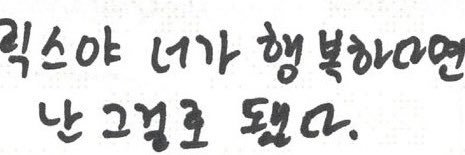 릭스야 너가 행복하다면
난 그걸로 됐다.